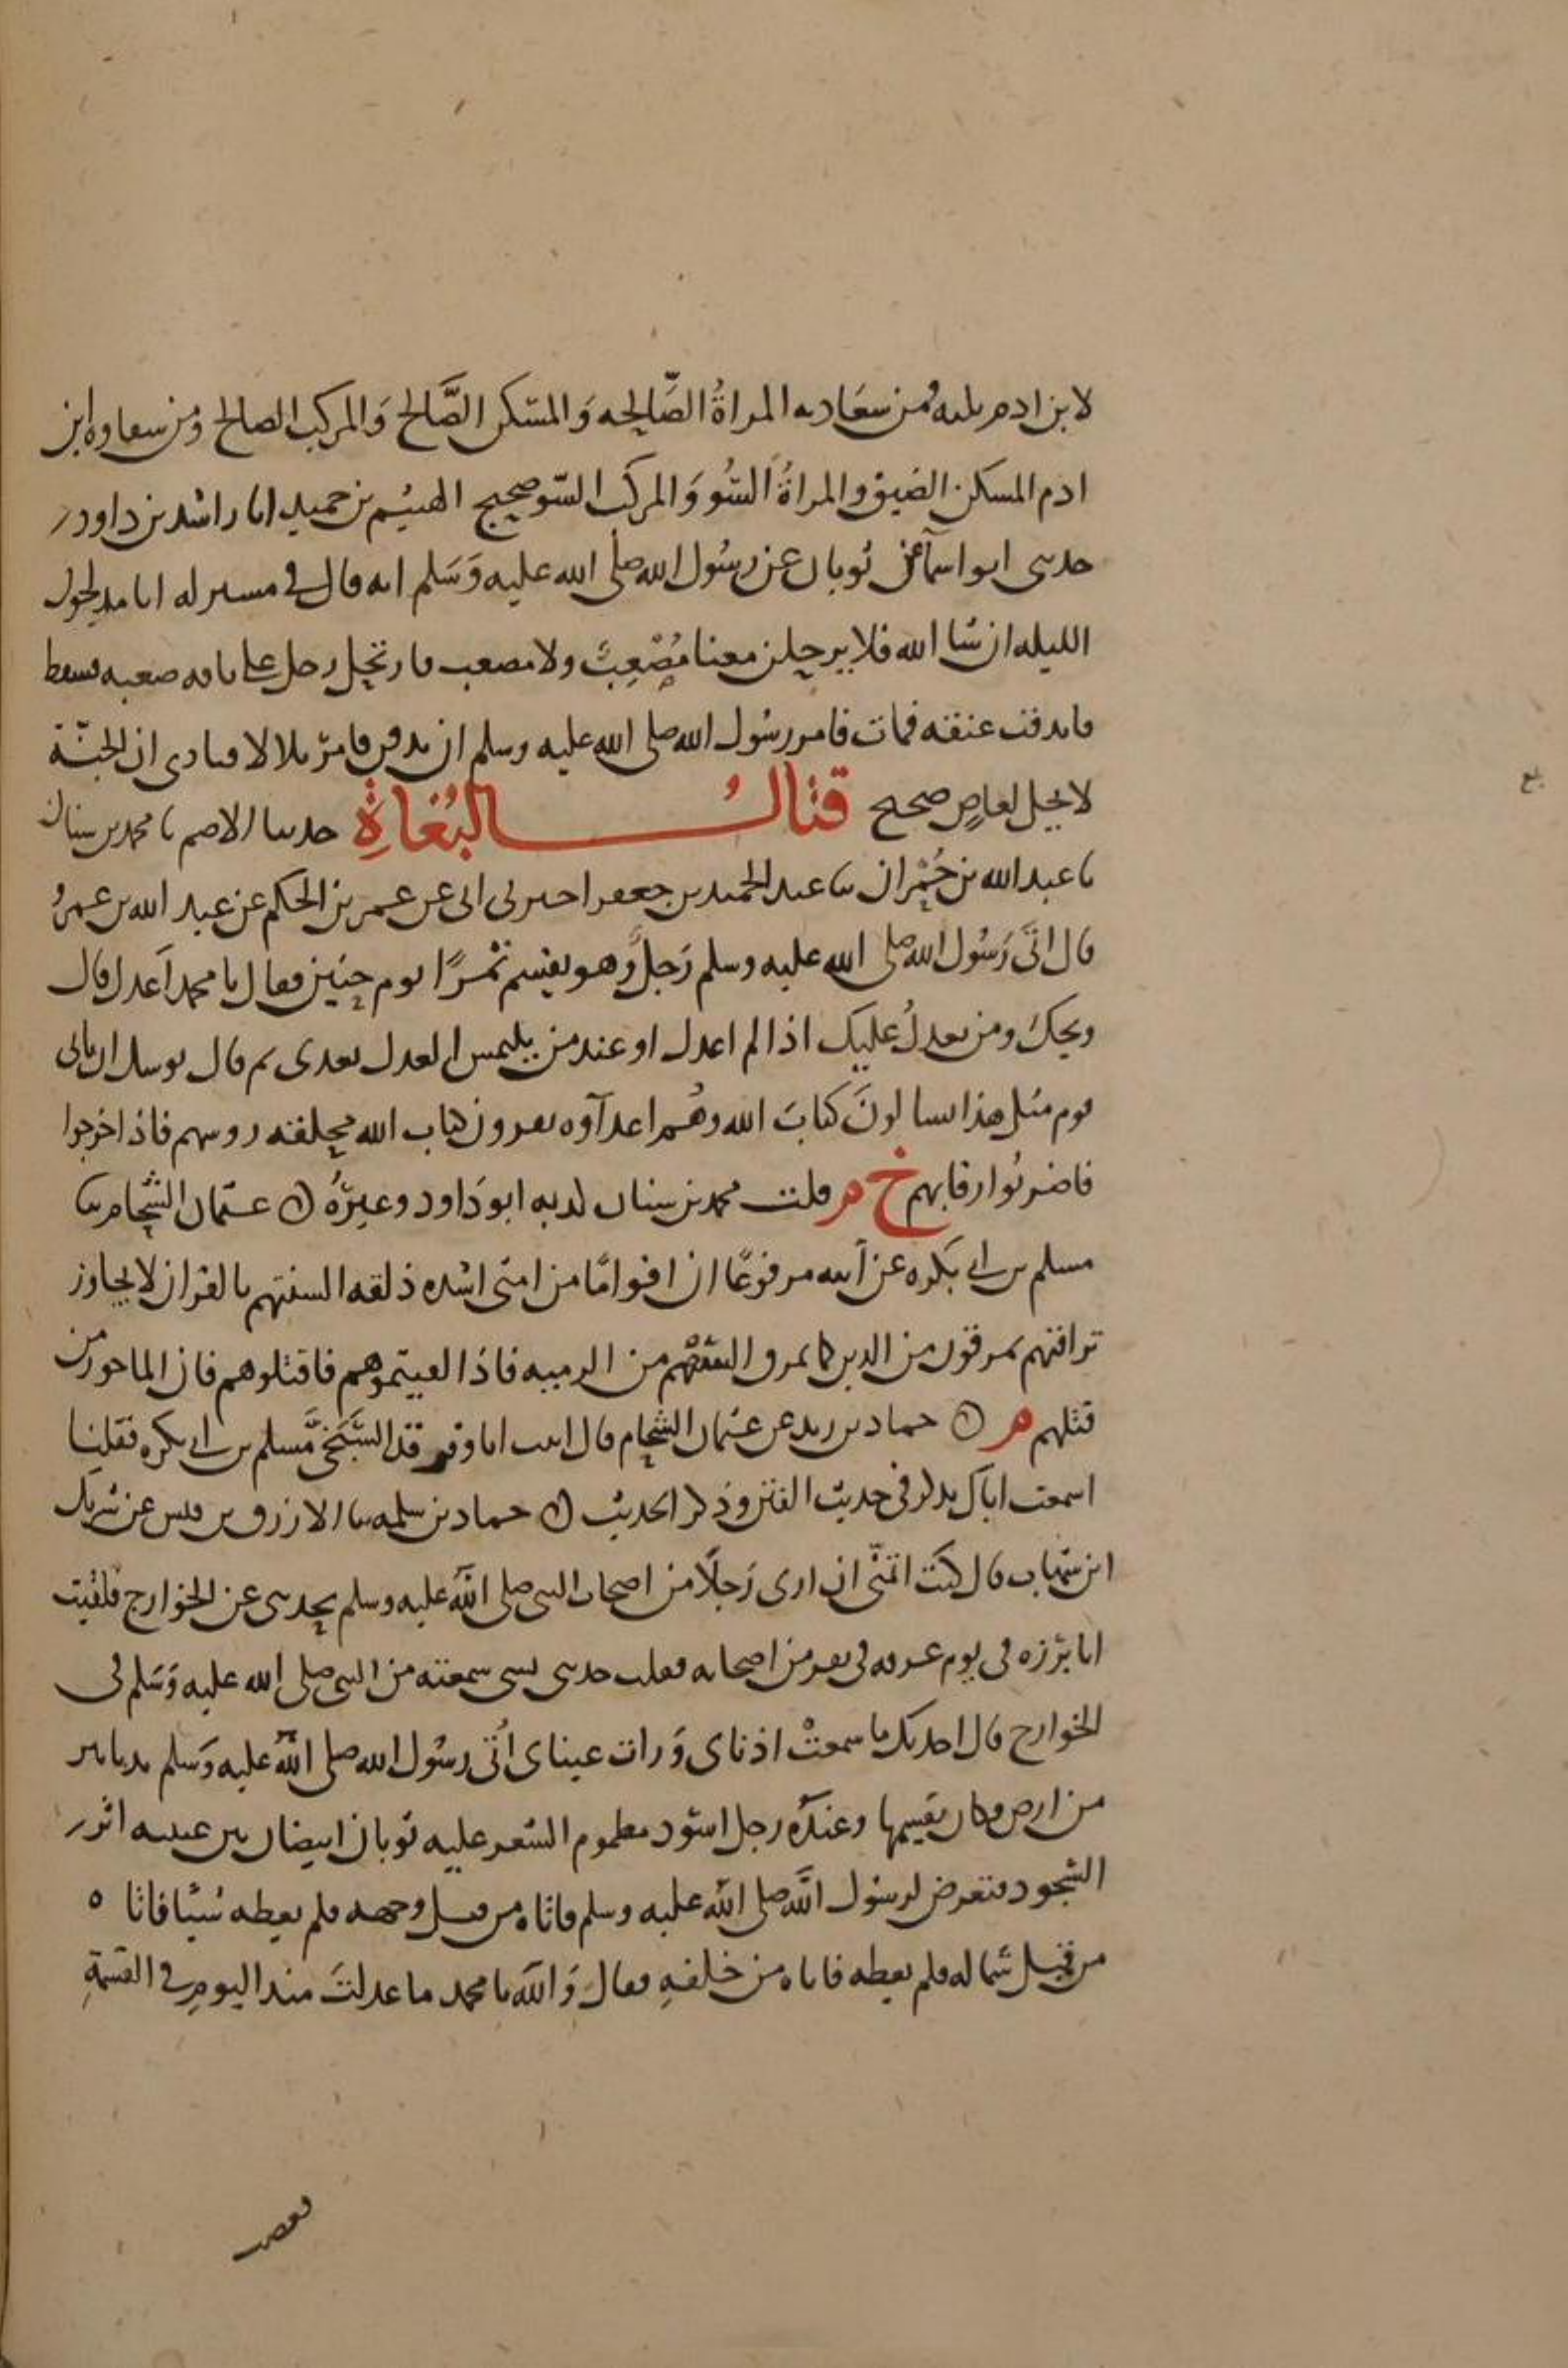 لابن ادم ثلثه فمن سعادته المراةُ الصَّالحه وَالمسكن الصَّالح وَالمركب الصالح وَمن سعاوه ابن
ادم المسكن الضيق والمراةُ السُّو وَالمركب السّو صحيح الهيثم بن حميد انا راشد بن داود
حدثني ابو اسمآ عن ثوبان عن رسُول الله صلى الله عليه وَسَلم انه قال في مسير له انا مدلجون
الليله ان شا الله فلا يرحلن معنا مُضْعِفٌ ولا مصعب فارتحل رجل على ناقه صعبه فسقط
فاندقت عنقه فمات فامر رسُول الله صلى الله عليه وسلم ان يدفن فامر بلالا فنادى ان الجنّة
لا تحل لعاصٍ صحيح قتالُ البُغاةِ حدثنا الاصم نا محمد بن سنان
نا عبد الله بن حُمْران نا عبد الحميد بن جعفر اخبرني ابي عن عمر بن الحكم عن عبد الله بن عمرُو
قال اتَى رَسُول الله صلى الله عليه وسلم رَجلٌ وَهو يقسم تمرًا يوم حنين فقال يا محمد اَعدل قال
ويحكَ ومن يعدلُ عليك اذا لم اعدل او عند من يلتمس العدل بعدى ثم قال يوشك ان ياتى
قوم مثل هذا يسالونَ كتابَ الله وهُم اعدآوه يقرون كتاب الله محلقه روسهم فاذا خرجوا
فاضربُوا رقابهم خ م قلت محمد بن سنان كذبه ابو دَاود وغيرُهُ ن عثمان الشحّام نا
مسلم بن ابي بَكره عن اَبيه مرفوعًا ان اقوامًا من امتى اشده ذلقه السنتهم بالقران لا يجاوز
تراقيهم يمرقون من الدين كما يمرق السّهْم من الرميه فاذا لقيتموهم فاقتلوهم فان الماجور من
قتلهم م ن حماد بن زيد عن عثمان الشحّام قال اتيت انا وفرقد السَّبَخيَّ مَسلم بن ابي بكره فقلنا
اسمعت اباك يذكر في حديث الفتن وذكر الحديث ن حماد بن سلمه نا الازرق بن قيس عن شريك
ابن شهاب قال كنت اتمنّى ان ارى رَجلًا من اصحاب النبي صلى اللهُ عليه وسلم يحدثني عن الخوارج فلقيت
ابا برْزه في يوم عرفه في نفر من اصحابه فقلت حدثني بشى سمعته من النبي صلى الله عليه وَسَلم في
الخوارج قال احدثك ما سمعتْ اذناى وَرات عيناى اُتى رسُول الله صلى اللهُ عليه وَسَلم بدنانير
من ارض وكان يقسمها وعندَهُ رجل اسود مطموم الشعر عليه ثوبان ابيضان بين عينيه اثر
السجود فتعرض لرسول اللهِ صلى الله عليه وسلم فاتاه من قبل وجهه فلم يعطه شيئا فاتا ه
من قِبل شماله فلم يعطه فاتاه من خلفهِ فقال وَاللهِ يا محمد ما عدلتَ منذ اليوم في القسْمةِ